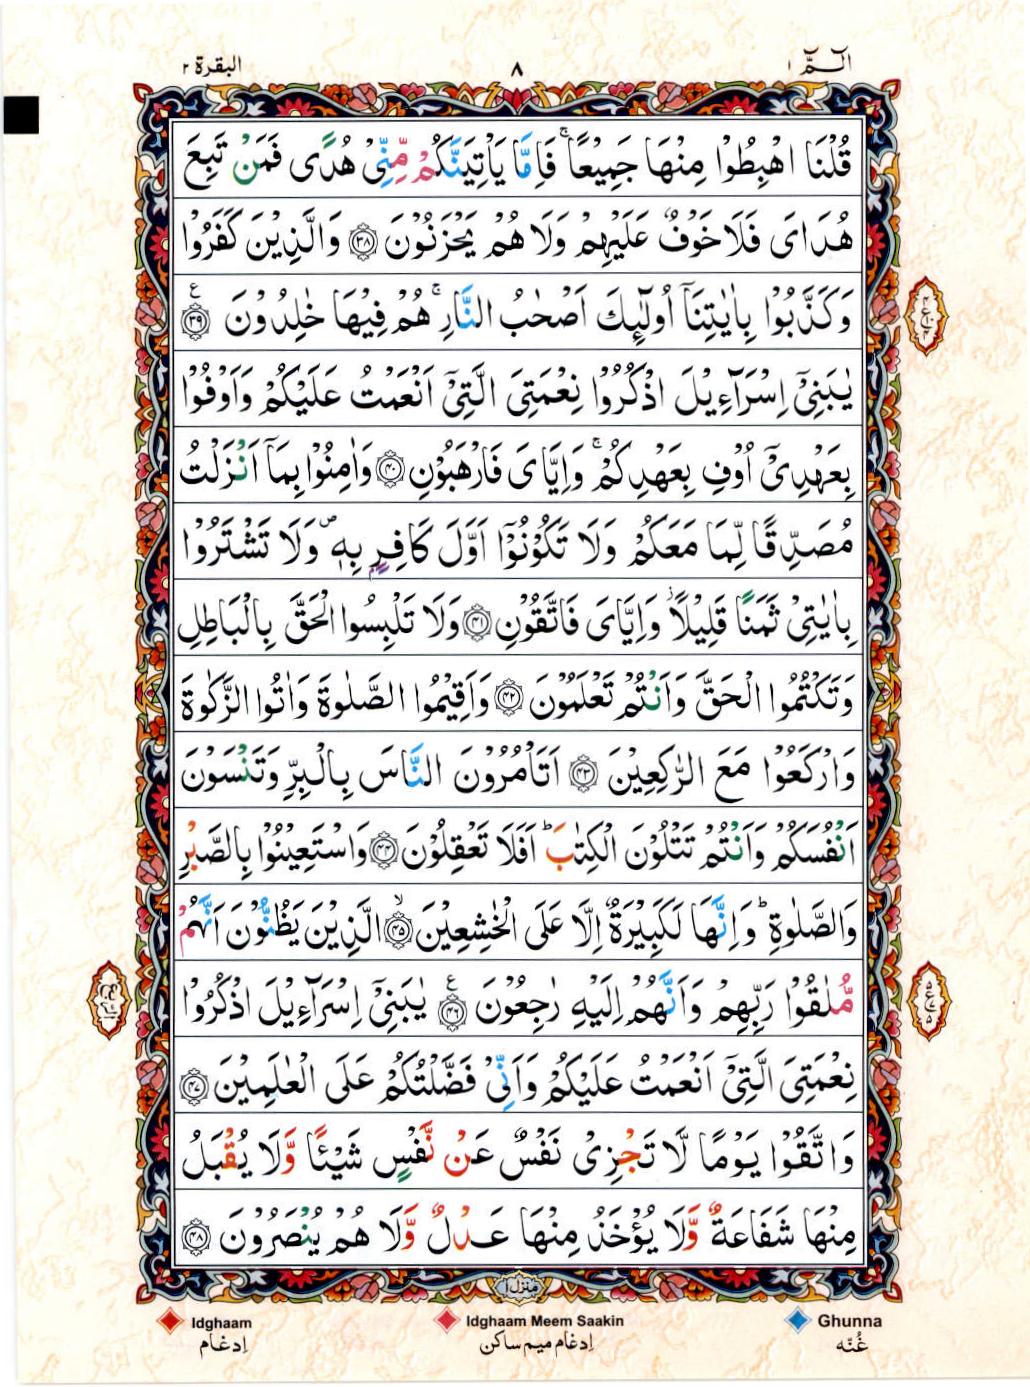 الٓمّٓ ١
٨
البقرة ٢
قُلْنَا اهْبِطُوْا مِنْهَا جَمِيْعًا ۚ فَاِمَّا يَاْتِيَنَّكُمْ مِّنِّيْ هُدًى فَمَنْ تَبِعَ
هُدَايَ فَلَا خَوْفٌ عَلَيْهِمْ وَلَا هُمْ يَحْزَنُوْنَ ﴿٣٨﴾ وَالَّذِيْنَ كَفَرُوْا
وَكَذَّبُوْا بِاٰيٰتِنَآ اُولٰٓئِكَ اَصْحٰبُ النَّارِ ۚ هُمْ فِيْهَا خٰلِدُوْنَ ﴿٣٩﴾ ع
يٰبَنِيْٓ اِسْرَآءِيْلَ اذْكُرُوْا نِعْمَتِيَ الَّتِيْٓ اَنْعَمْتُ عَلَيْكُمْ وَاَوْفُوْا
بِعَهْدِيْٓ اُوْفِ بِعَهْدِكُمْ ۚ وَاِيَّايَ فَارْهَبُوْنِ ﴿٤٠﴾ وَاٰمِنُوْا بِمَآ اَنْزَلْتُ
مُصَدِّقًا لِّمَا مَعَكُمْ وَلَا تَكُوْنُوْٓا اَوَّلَ كَافِرٍۢ بِهٖ ۪ وَلَا تَشْتَرُوْا
بِاٰيٰتِيْ ثَمَنًا قَلِيْلًا ۡ وَاِيَّايَ فَاتَّقُوْنِ ﴿٤١﴾ وَلَا تَلْبِسُوا الْحَقَّ بِالْبَاطِلِ
وَتَكْتُمُوا الْحَقَّ وَاَنْتُمْ تَعْلَمُوْنَ ﴿٤٢﴾ وَاَقِيْمُوا الصَّلٰوةَ وَاٰتُوا الزَّكٰوةَ
وَارْكَعُوْا مَعَ الرّٰكِعِيْنَ ﴿٤٣﴾ اَتَاْمُرُوْنَ النَّاسَ بِالْبِرِّ وَتَنْسَوْنَ
اَنْفُسَكُمْ وَاَنْتُمْ تَتْلُوْنَ الْكِتٰبَ ؕ اَفَلَا تَعْقِلُوْنَ ﴿٤٤﴾ وَاسْتَعِيْنُوْا بِالصَّبْرِ
وَالصَّلٰوةِ ؕ وَاِنَّهَا لَكَبِيْرَةٌ اِلَّا عَلَى الْخٰشِعِيْنَ ۙ ﴿٤٥﴾ الَّذِيْنَ يَظُنُّوْنَ اَنَّهُمْ
مُّلٰقُوْا رَبِّهِمْ وَاَنَّهُمْ اِلَيْهِ رٰجِعُوْنَ ﴿٤٦﴾ ع يٰبَنِيْٓ اِسْرَآءِيْلَ اذْكُرُوْا
نِعْمَتِيَ الَّتِيْٓ اَنْعَمْتُ عَلَيْكُمْ وَاَنِّيْ فَضَّلْتُكُمْ عَلَى الْعٰلَمِيْنَ ﴿٤٧﴾
وَاتَّقُوْا يَوْمًا لَّا تَجْزِيْ نَفْسٌ عَنْ نَّفْسٍ شَيْـًٔا وَّلَا يُقْبَلُ
مِنْهَا شَفَاعَةٌ وَّلَا يُؤْخَذُ مِنْهَا عَدْلٌ وَّلَا هُمْ يُنْصَرُوْنَ ﴿٤٨﴾
منزل ١
Idghaam Idghaam Meem Saakin Ghunna
اِدغَام اِدغَام میم ساکن غُنّه